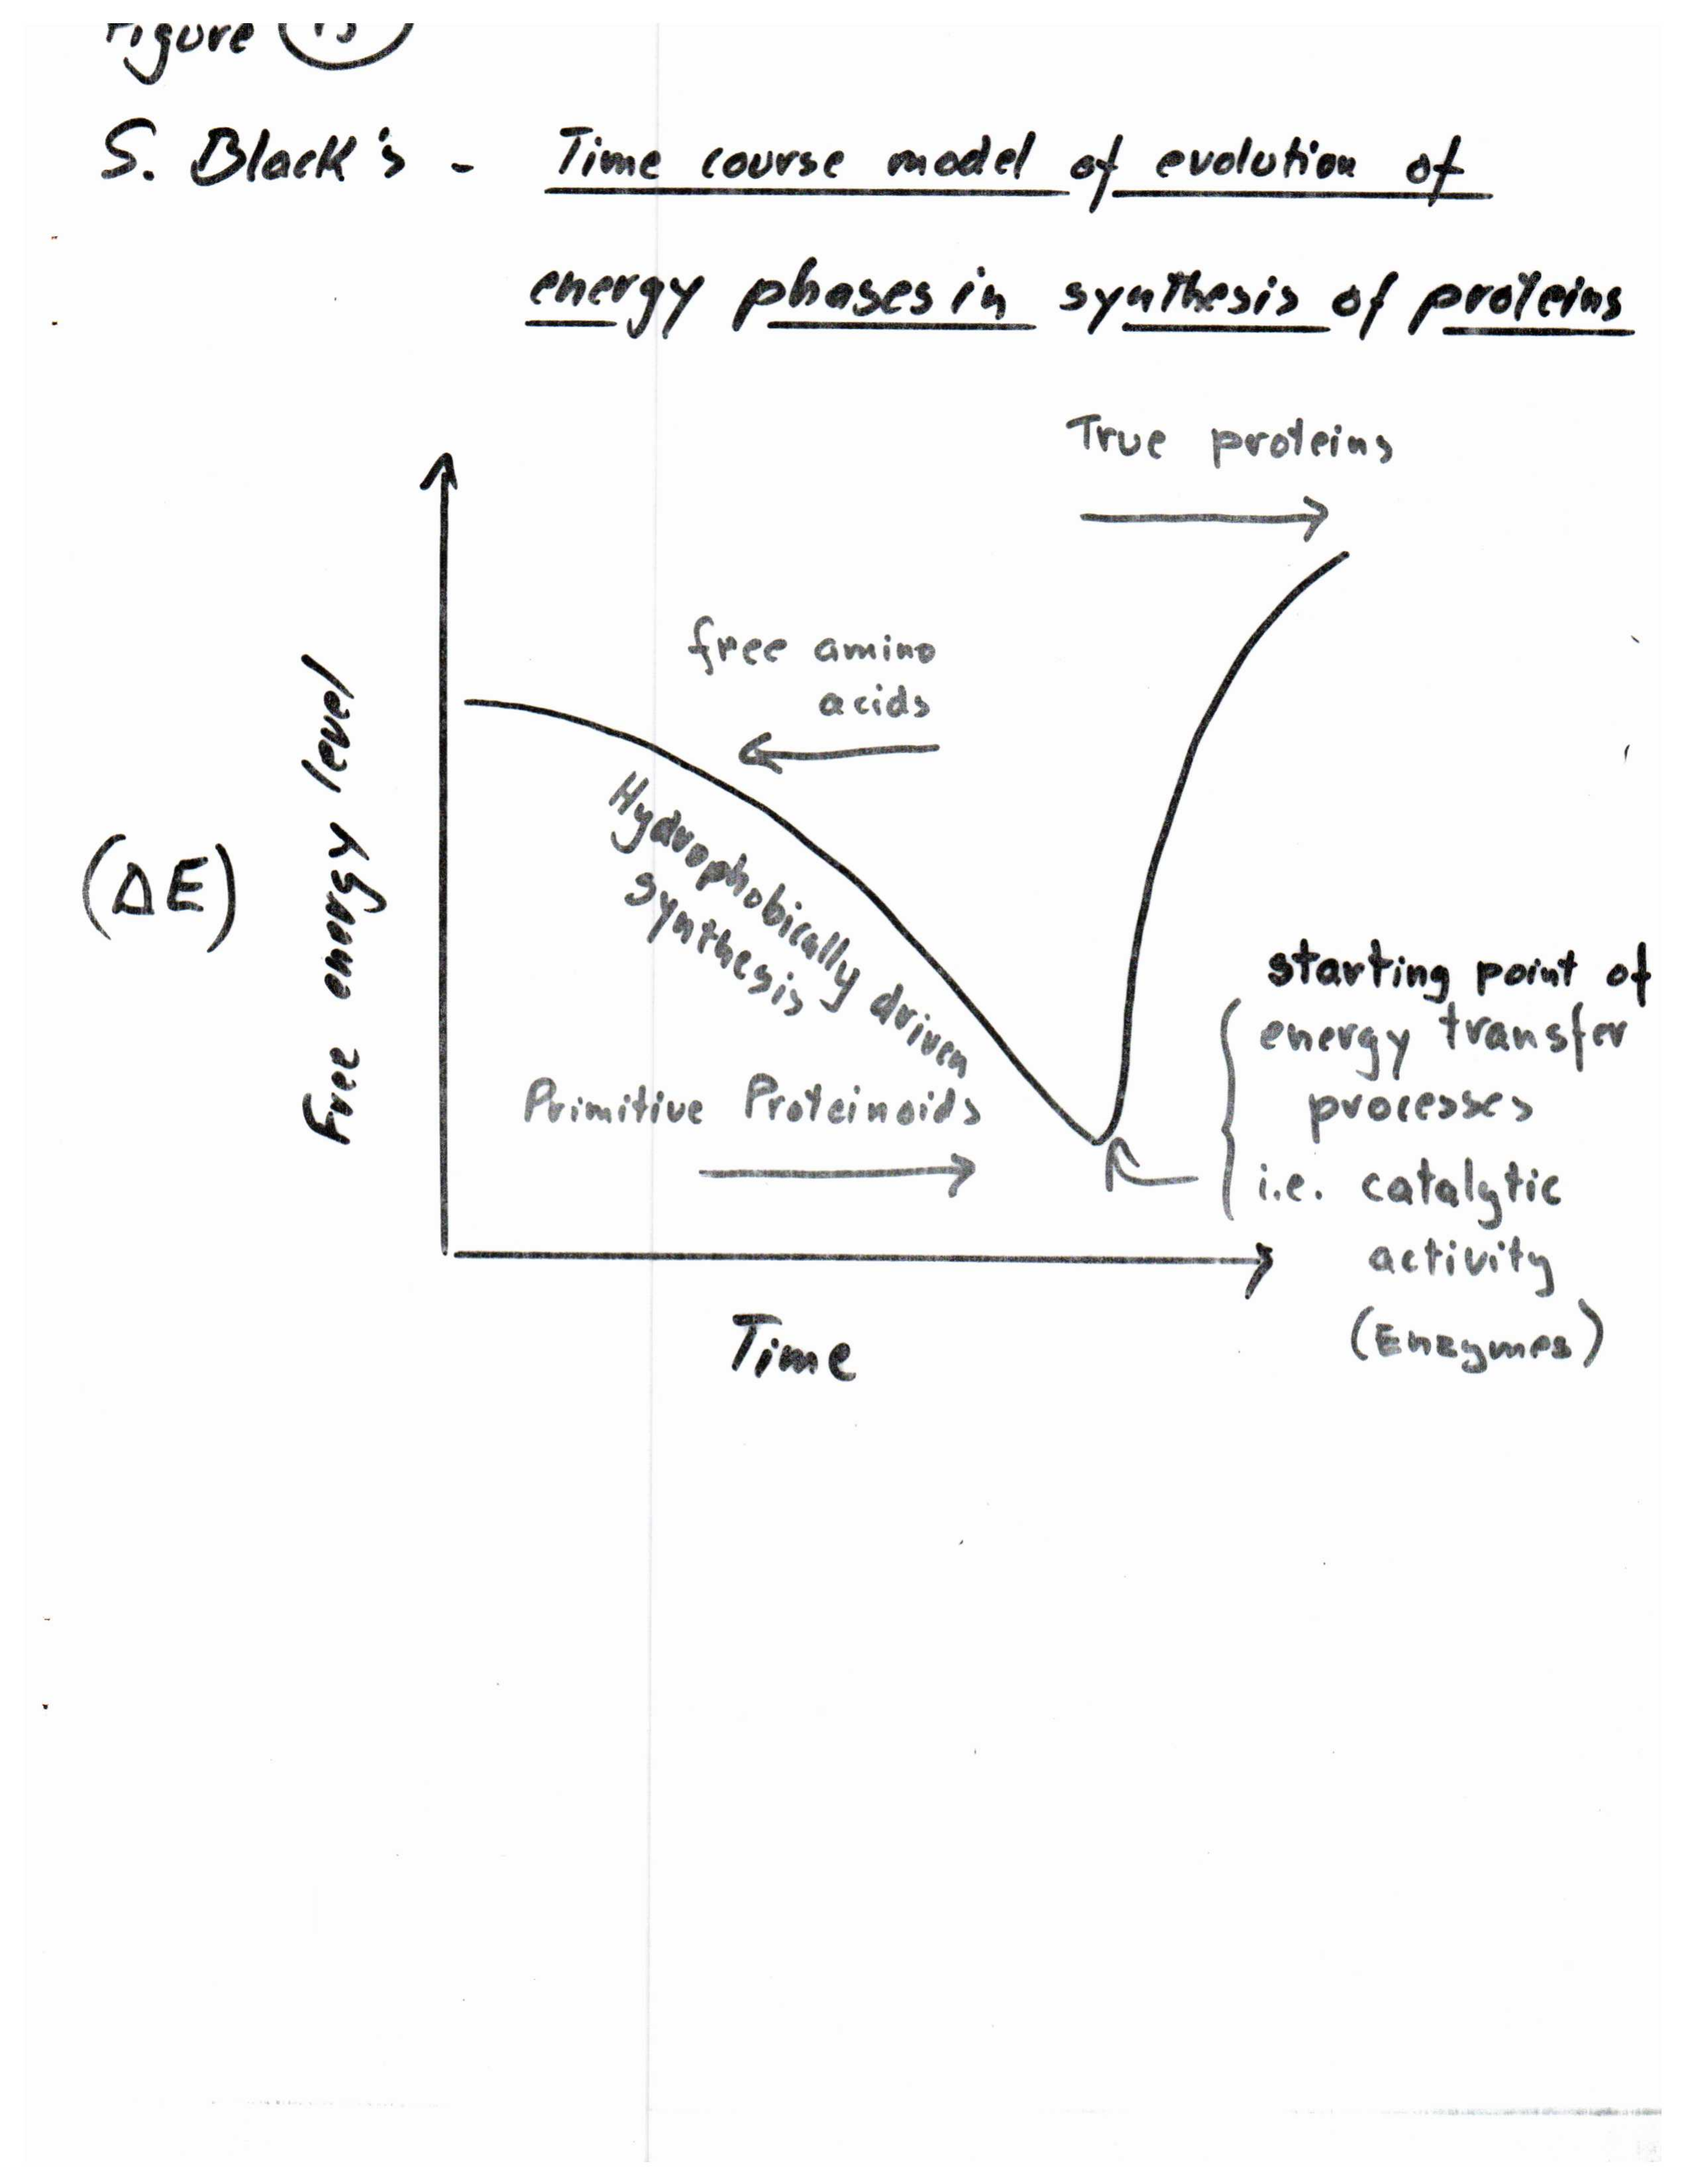 Figure
S. Black's - Time course model of evolution of
energy phases in synthesis of proteins
True proteins
free amino
acids
Free energy level
(ΔE)
Hydrophobically driven
synthesis
Primitive Proteinoids
starting point of
energy transfer
processes
i.e. catalytic
activity
(Enzymes)
Time